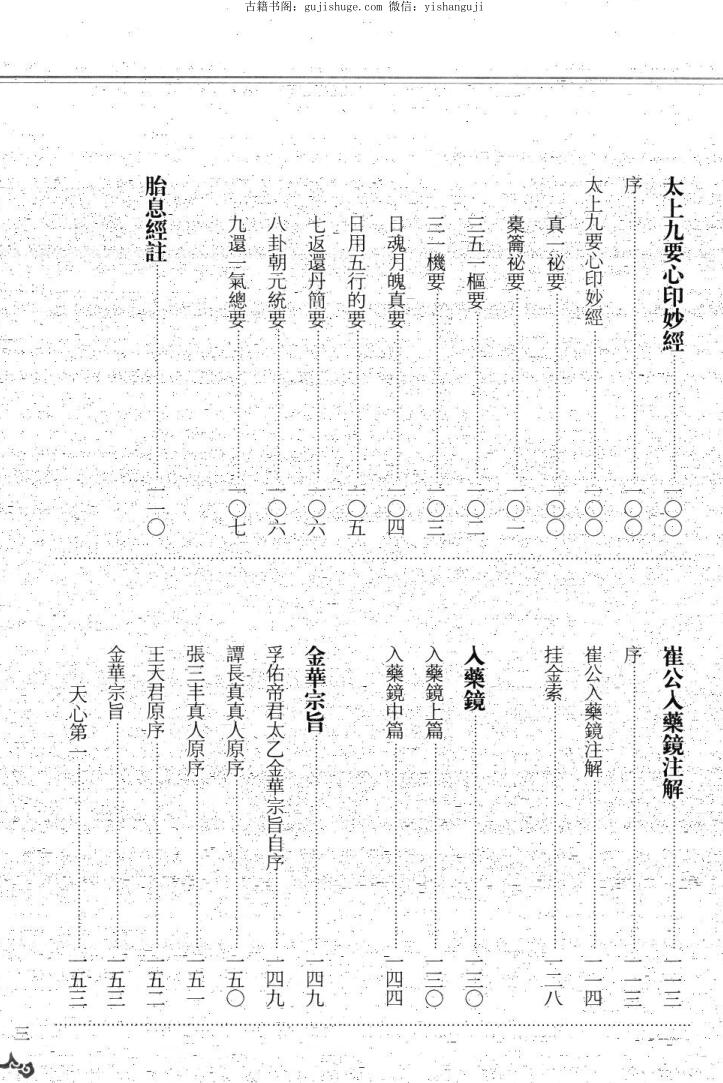 古籍书阁：gujishuge.com 微信：yishanguji
太上九要心印妙經 一〇〇
序 一〇〇
太上九要心印妙經 一〇〇
真一祕要 一〇〇
橐籥祕要 一〇一
三五一樞要 一〇二
三一機要 一〇三
日魂月魄真要 一〇四
日用五行的要 一〇五
七返還丹簡要 一〇六
八卦朝元統要 一〇六
九還一氣總要 一〇七
胎息經註 一一〇
崔公入藥鏡注解 一一三
序 一一三
崔公入藥鏡注解 一一四
挂金索 一二八
入藥鏡 一三〇
入藥鏡上篇 一三〇
入藥鏡中篇 一四四
金華宗旨 一四九
孚佑帝君太乙金華宗旨自序 一四九
譚長真真人原序 一五〇
張三丰真人原序 一五一
王天君原序 一五二
金華宗旨 一五三
天心第一 一五三
三